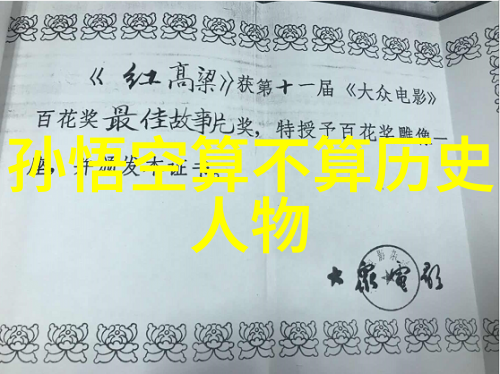 《红高粱》获第十一届《大众电影》
百花奖最佳故事片奖，特授予百花奖雕像一
座，并颁发本证书。
孙悟空算不算历史
人物
大众电影